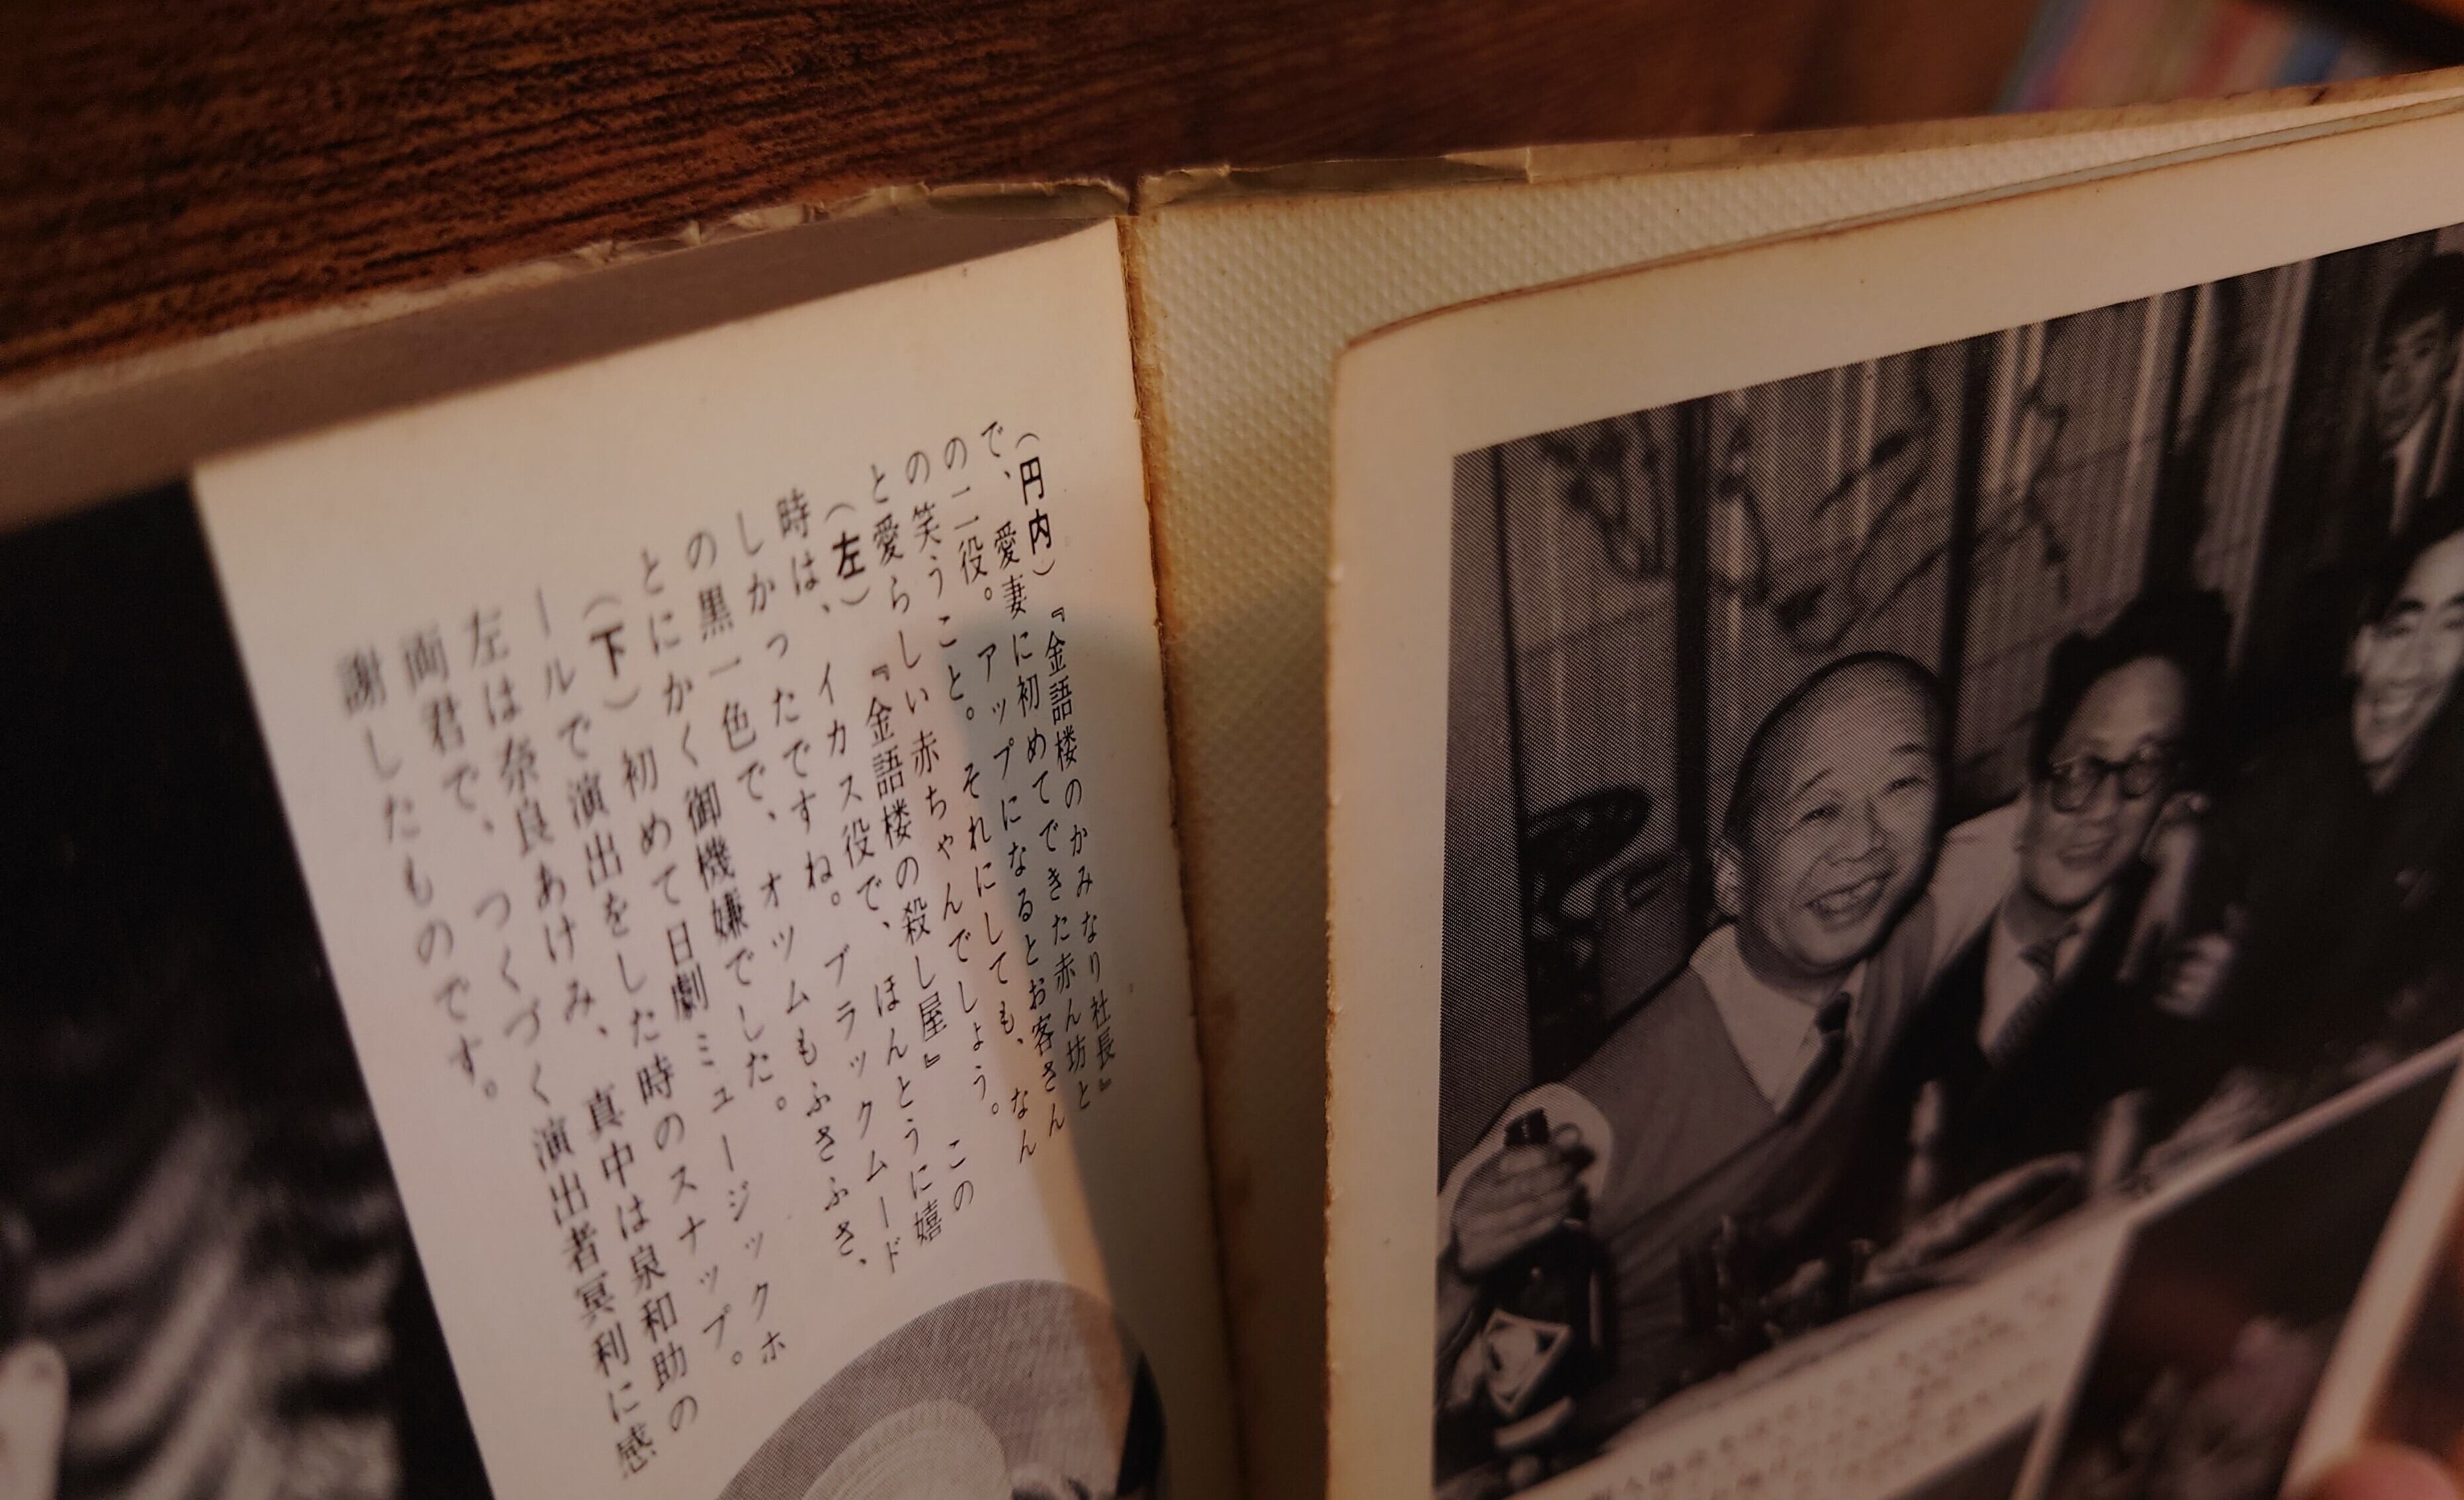 (円内)『金語楼のかみなり社長』
で、愛妻に初めてできた赤ん坊と
の二役。アップになるとお客さん
の笑うこと。それにしても、なん
と愛らしい赤ちゃんでしょう。
(左)『金語楼の殺し屋』この
時は、イカス役で、ほんとうに嬉
しかったですね。ブラックムード
の黒一色で、オツムもふさふさ、
とにかく御機嫌でした。
(下)初めて日劇ミュージックホ
ールで演出をした時のスナップ。
左は奈良あけみ、真中は泉和助の
両君で、つくづく演出者冥利に感
謝したものです。